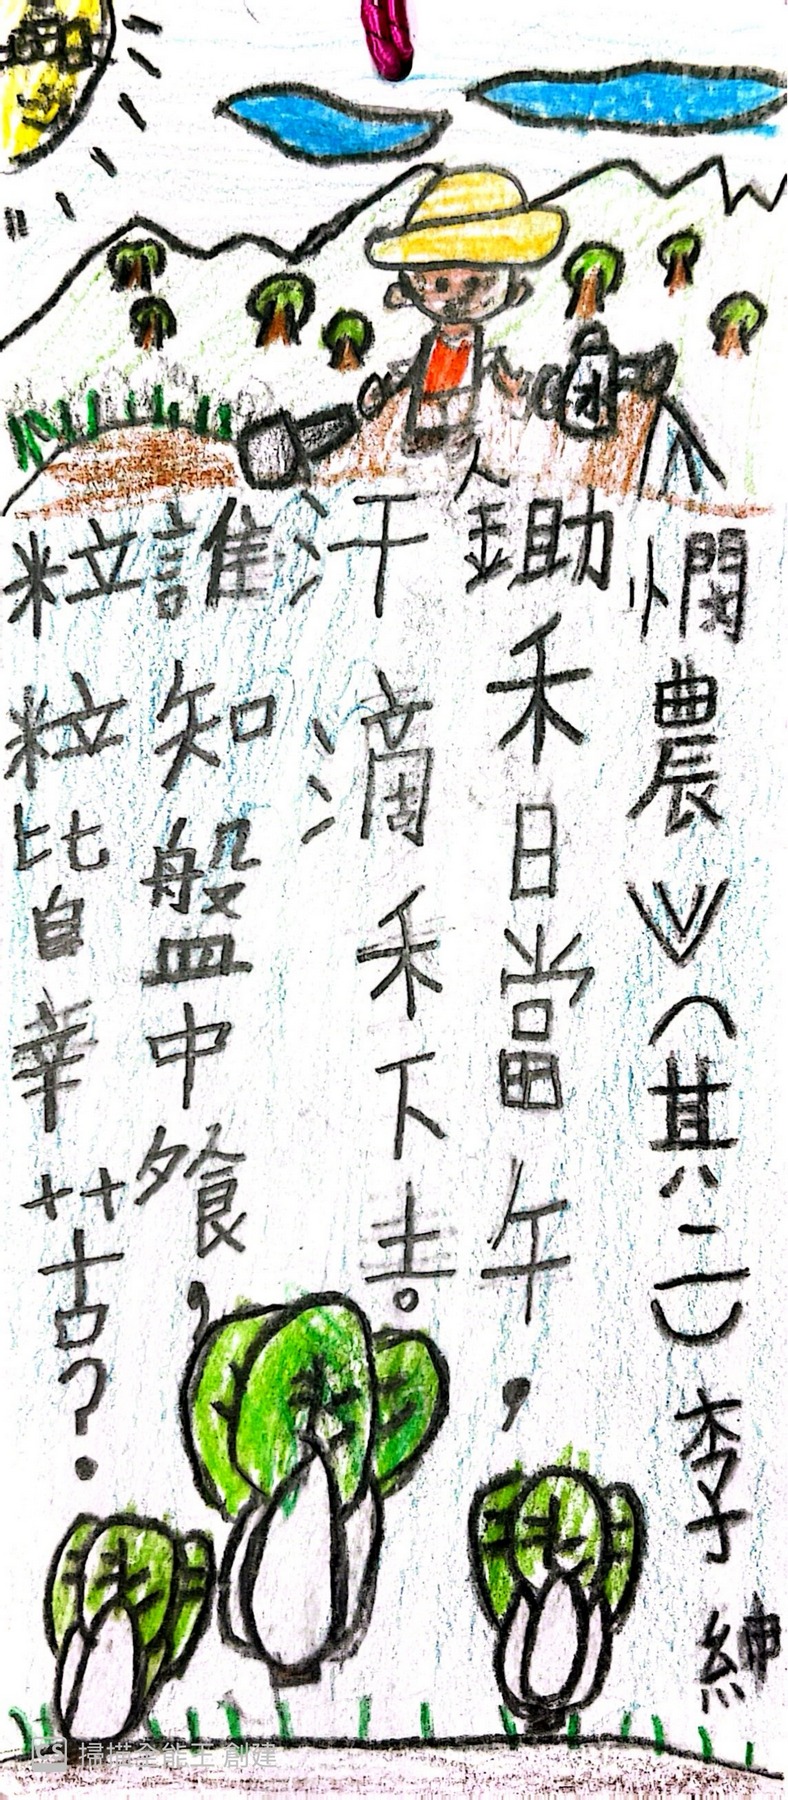 憫農》(其二)李紳
鋤禾日當午，
汗滴禾下土。
誰知盤中飧，
粒粒皆辛苦？
水
掃描全能王 創建